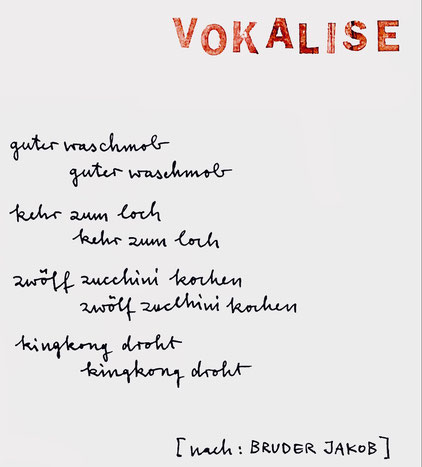 VOKALISE
guter waschmob
guter waschmob
kehr zum loch
kehr zum loch
zwölf zucchini kochen
zwölf zucchini kochen
kingkong droht
kingkong droht
[nach: BRUDER JAKOB]